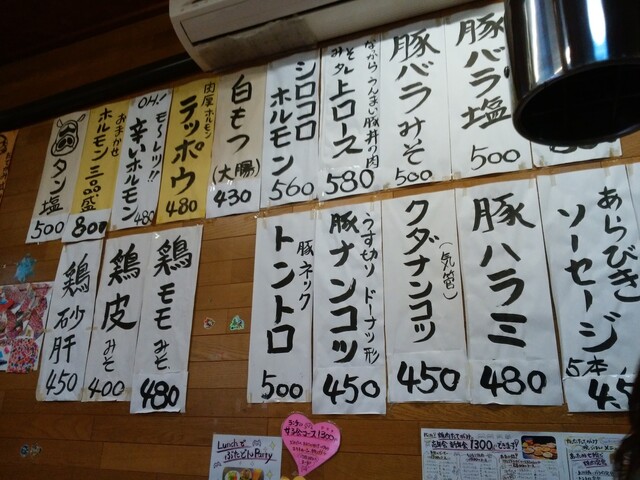 豚バラ塩
500
豚バラみそ
500
ながらうんまい豚丼の肉
みそタレ上ロース
580
シロコロ
ホルモン
560
白もつ(大腸)
430
肉厚ホルモン
テッポウ
480
OH!モ～レツ!!
辛いホルモン
480
おまかせ
ホルモン三品盛
800
タン塩
500
あらびき
ソーセージ
5本
豚ハラミ
480
クダナンコツ
(気管)
450
うす切り ドーナツ形
豚ナンコツ
450
豚ネック
トントロ
500
鶏モモみそ
480
鶏皮みそ
400
鶏砂肝
450
Lunchで
ぶたどんParty
1300